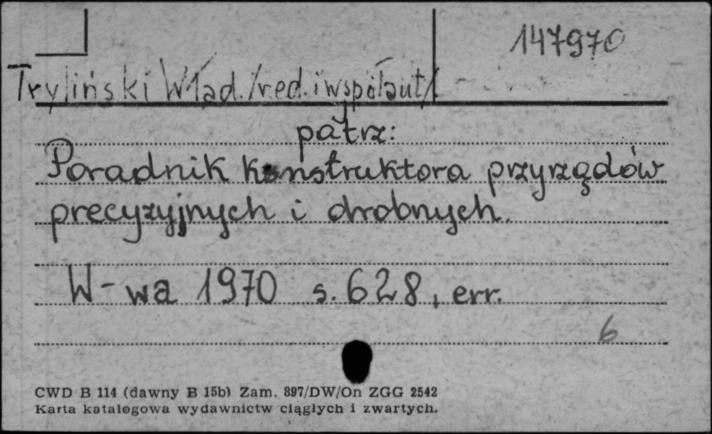 147970
Tryliński Wład. /red. i współaut/
patrz:
Poradnik konstruktora przyrządów
precyzyjnych i drobnych.
W-wa 1970 s. 628, err.
6
CWD B 114 (dawny B 15b) Zam. 897/DW/On ZGG 2542
Karta katalogowa wydawnictw ciągłych i zwartych.